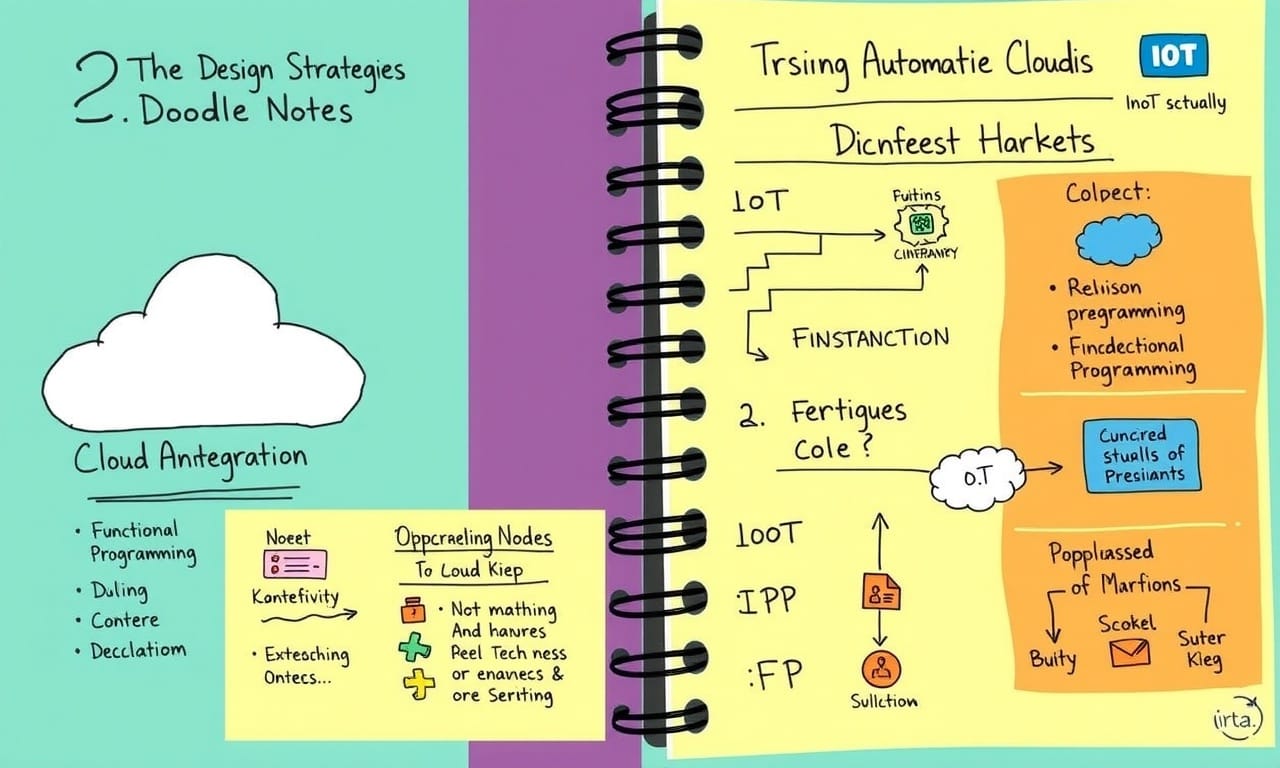 2. The Design Strategies
Doodle Notes
Cloud Anntegration
• Functional
Programming
• Duling
• Contere
• Decclatiom
Noeet
Kantefivity
• Extesching
Ontecs...
Oppcraeling Nodes
To Loud Kiep
• Not mathing
And haures
Peel Tech ness
or enances &
ore Serıting
Trsiing Automatie Cloudis
IOT
InoT sctually
Dicnfeest Harkets
IoT
Fuitins
FINSTANCTION
2. Fertigues
Cole ?
O.T
IOOT
IPP
:FP
Sullction
Colpect:
• Reliison
pregramming
• Fincdectional
Programming
Cuncired
stualls of
Presiiants
Popplıassed
of Marfions
Buity
Scokel
Suter
Kleg
irta.